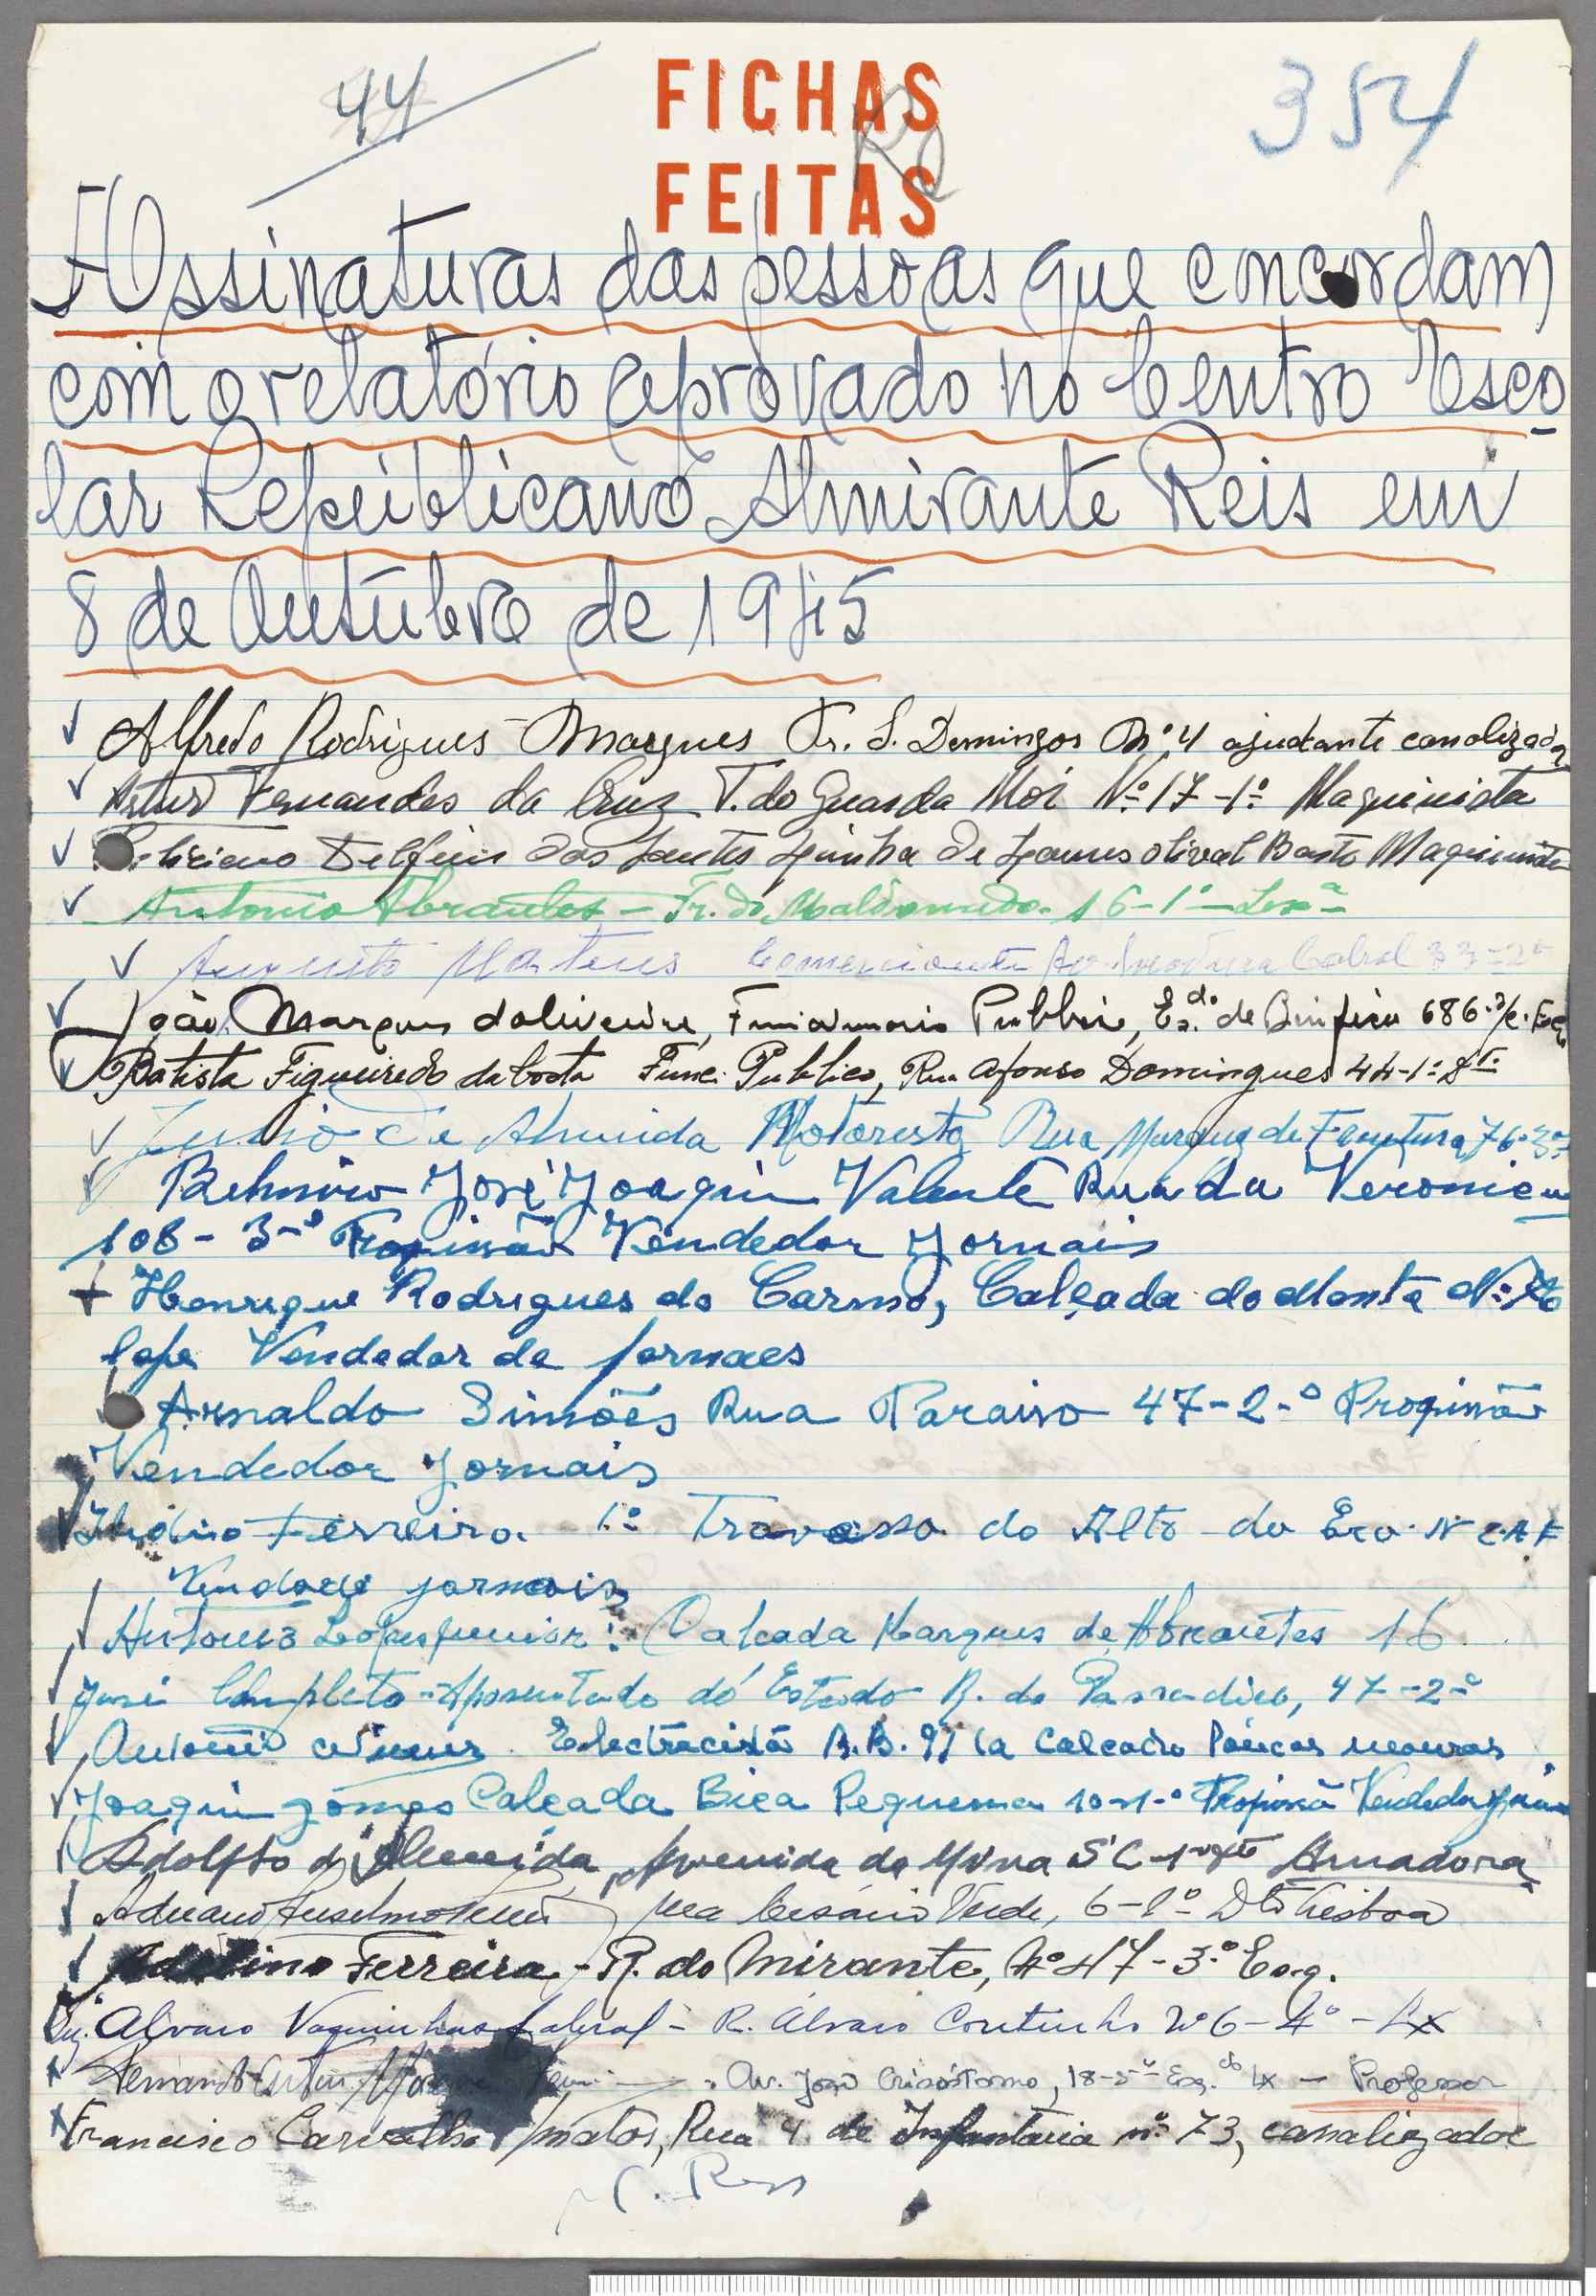 44
FICHAS
354
FEITAS
Assinaturas das pessoas que concordam
com o relatório aprovado no Centro Esco
lar Republicano Almirante Reis em
8 de Outubro de 1945
Alfredo Rodrigues Marques Tr. S. Domingos Nº 4 ajudante canalizador
Artur Fernandes da Cruz T. do Guarda Mór Nº 17-1º Maquinista
Delfim dos Santos Olival Basto Maquinista
Antonio Abrantes - Tr. do Maldonado. 16-1º - Lxª
Augusto Martins Comerciante Av. Cabral 33-2º
João Marques d'oliveira, Funcionario Publico, Es.da de Benfica 686 r/c. Esq.
Batista Figueiredo da Costa Func. Publico, Rua Afonso Domingues 44-1º Dt.
Julio de Almeida Motorista Rua Marques da Fronteira, 76-3º
José Joaquim Valente Rua da Veronica
108-3-º Profissão Vendedor Jornais
Henrique Rodrigues do Carmo, Calçada do Monte Nº
loja Vendedor de jornaes
Arnaldo Simões Rua Paraiso 47-2-º Profissão
Vendedor Jornais
Ilidio Ferreira 1º Travessa do Alto do
Vendedor jornais
Antonio Lopes Junior: Calcada Marques de Abrantes 16
José Completo - Aposentado do Estado R. do Passadiço, 47-2º
Antonio Electricista Calcada
Joaquim gomes Calçada Bica Pequena 10-1-º Profissã Vendedor
Adolfo d'Almeida, Avenida da Mina Amadora
Adriano Anselmo rua Cesário Verde, 6-1º Dtº Lisboa
Adelino Ferreira - R. do Mirante, Nº 47-3º Esq.
Alvaro Vaquinhas Cabral - R. Alvaro Coutinho Nº 6-4º - Lx
Fernando Av. João Crisóstomo, 18-5º Esq. Lx - Professor
Francisco Carvalho Matos, Rua 4 de Infantaria nº 73, canalizador